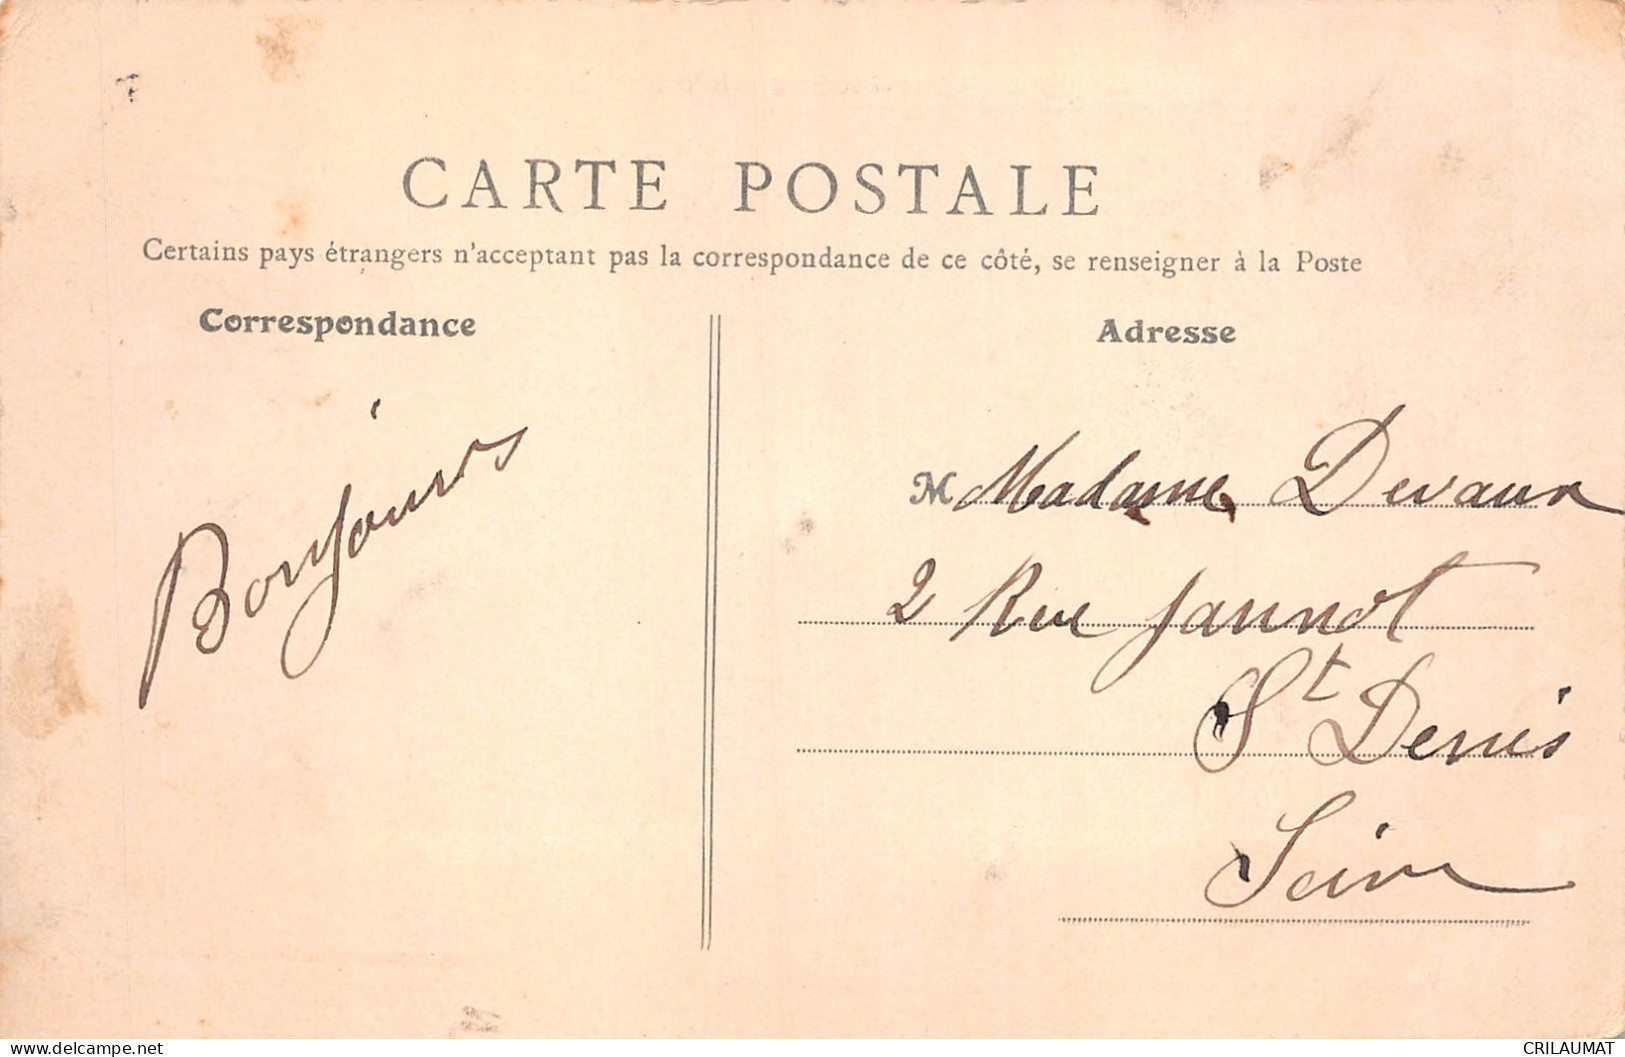 CARTE POSTALE
Certains pays étrangers n'acceptant pas la correspondance de ce côté, se renseigner à la Poste
Correspondance
Bonjours
Adresse
M Madame Devaux
2 Rue Jannot
St Denis
Seine
www.delcampe.net
CRILAUMAT